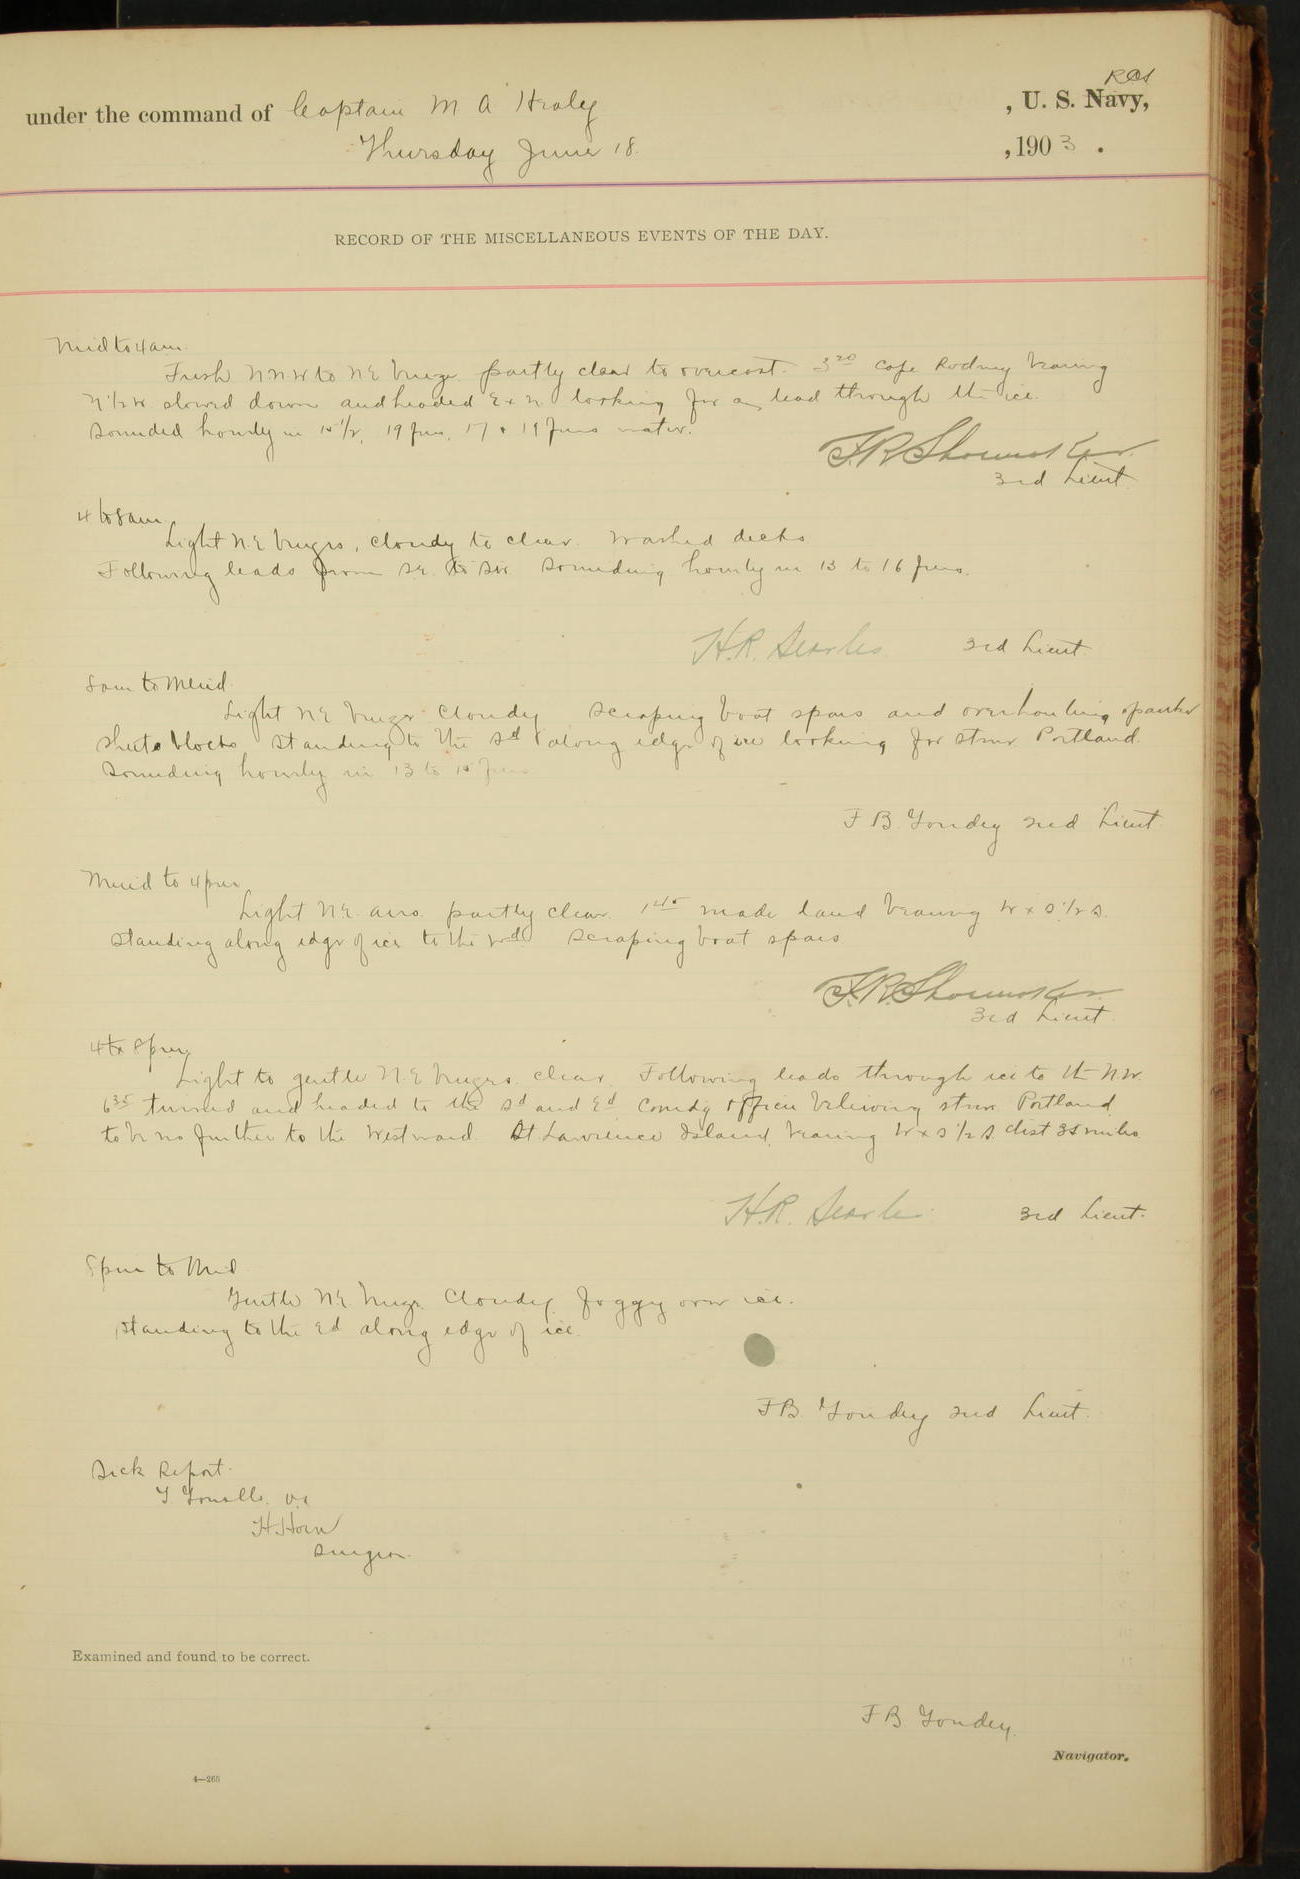 RCS
under the command of Captain M A Healy , U. S. Navy,
Thursday June 18 , 1903 .
RECORD OF THE MISCELLANEOUS EVENTS OF THE DAY.
Mid to 4 am.
Fresh NNW to NE breeze partly clear to overcast. 3 20 Cape Rodney bearing
N 1/2 W slowed down and headed E x N looking for a lead through the ice.
Sounded hourly in 15 1/2, 19 fms, 17 & 19 fms water.
F.R. Shoemaker
3rd Lieut.
4 to 8 am
Light N.E breezes, cloudy to clear. Washed decks
Following leads from SE. to SW Sounding hourly in 13 to 16 fms.
H.R. Searles 3rd Lieut.
8 am to Merid.
Light NE breeze cloudy Scraping boat spars and overhauling spanker
sheet blocks Standing to the Sd along edge of ice looking for stmr Portland.
Sounding hourly in 13 to 15 fms
F B. Goudey 2nd Lieut.
Merid to 4 pm
Light NE. airs. partly clear. 1 45 made land bearing W x S 1/2 S.
Standing along edge of ice to the Wd. Scraping boat spars
F.R. Shoemaker
3rd Lieut.
4 to 8 pm
Light to gentle N.E breezes. clear. Following leads through ice to the NW.
6 35 turned and headed to the Sd and Ed Comdg Officer believing stmr Portland
to be no further to the Westward. St Lawrence Island, bearing W x S 1/2 S. dist 35 miles
H.R. Searles 3rd Lieut.
8 pm to Mid
Gentle NE breeze Cloudy foggy over ice.
Standing to the Ed along edge of ice.
F B. Goudey 2nd Lieut.
Sick Report.
H. Horn
Surgeon.
Examined and found to be correct.
F B Goudey.
Navigator.
4—265